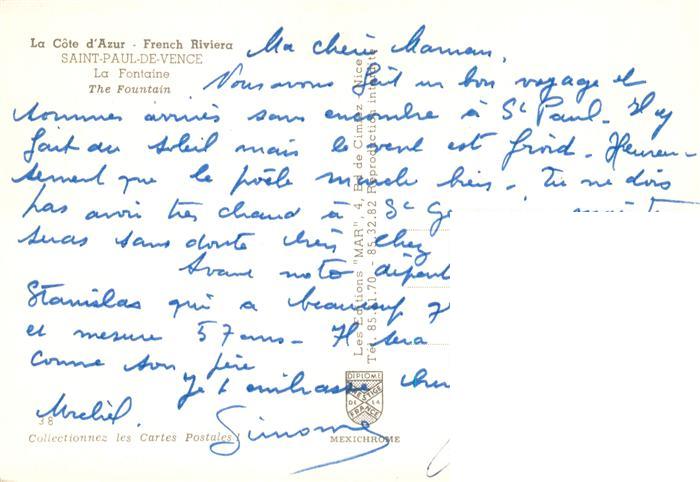 La Côte d'Azur - French Riviera
SAINT-PAUL-DE-VENCE
La Fontaine
The Fountain
Ma chère Maman,
Nous avons fait un bon voyage et
sommes arrivés sans encombre à St Paul. Il y
fait du soleil mais le vent est froid. Heureu-
sement que le poêle marche bien. Tu ne dois
pas avoir très chaud à St
seras sans doute bien chez
Avant notre départ
Stanislas qui a beaucoup
et mesure 57 cms. Il sera
comme son père
Je t'embrasse
Michel. Simone
38
Collectionnez les Cartes Postales !
MEXICHROME
DIPLOME
PRESTIGE
DE LA
FRANCE
Les Editions "MAR", 4, Bd de Cimiez, Nice
Tél. 85.41.70 - 85.32.82 Reproduction interdite